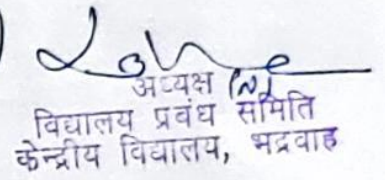 अध्यक्ष
विद्यालय प्रबंध समिति
केन्द्रीय विद्यालय, भद्रवाह